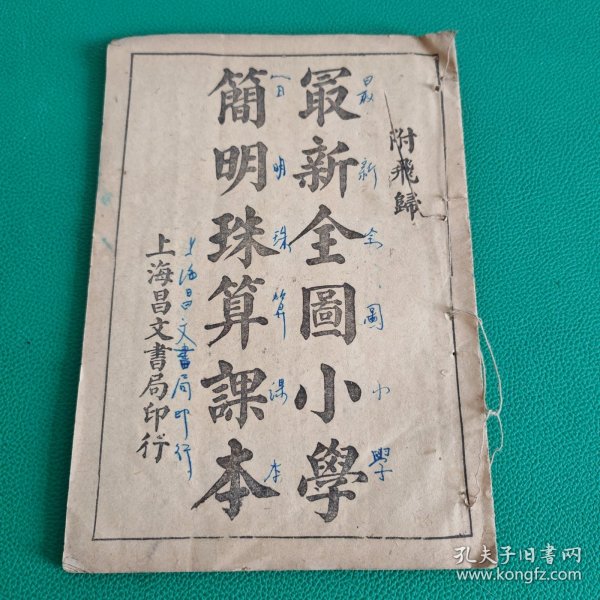 附飛歸
最新全圖小學
最新全圖小學
簡明珠算課本
明珠算課本
上海昌文書局印行
上海昌文書局印行
孔夫子旧书网
www.kongfz.com